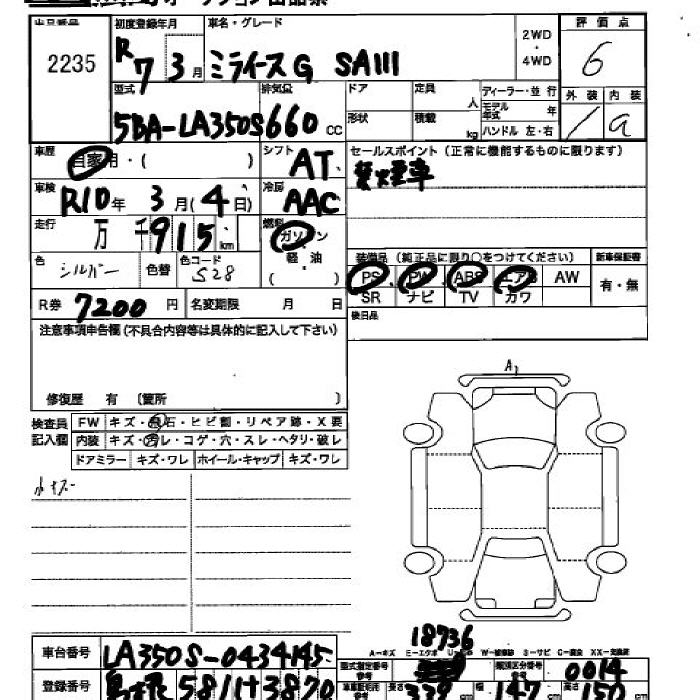 出品番号 初度登録年月 車名・グレード 2WD・4WD 評価点
2235 R7 3月 ミライースG SAIII 6
型式 排気量 ドア 定員 人 ディーラー・並行 外装 内装
5BA-LA350S 660cc 形状 積載 kg モデル年式 年 a
ハンドル 左・右
車歴 自家用・( ) シフト AT セールスポイント (正常に機能するものに限ります)
禁煙車
車検 R10年 3月(4日) 冷房 AAC
走行 万 千 915km 燃料 ガソリン
軽油
( )
色 シルバー 色替 色コード S28
装備品 (純正品に限り○をつけてください) 新車保証書
PS PW ABS エアB AW 有・無
SR ナビ TV カワ
R券 7200円 名変期限 月 日
後日品
注意事項申告欄 (不具合内容等は具体的に記入して下さい)
修復歴 有 〔箇所 〕
A1
検査員記入欄
FW キズ・飛石・ヒビ割・リペア跡・X要
内装 キズ・汚レ・コゲ・穴・スレ・ヘタリ・破レ
ドアミラー キズ・ワレ ホイール・キャップ キズ・ワレ
小キズ
18736
車台番号 LA350S-0434145
A-キズ E-エクボ W-補修跡 S-サビ C-腐食 XX-交換済
型式指定番号 類別区分番号 0014
登録番号 581 け 3870
長さ 339cm 147cm 150cm